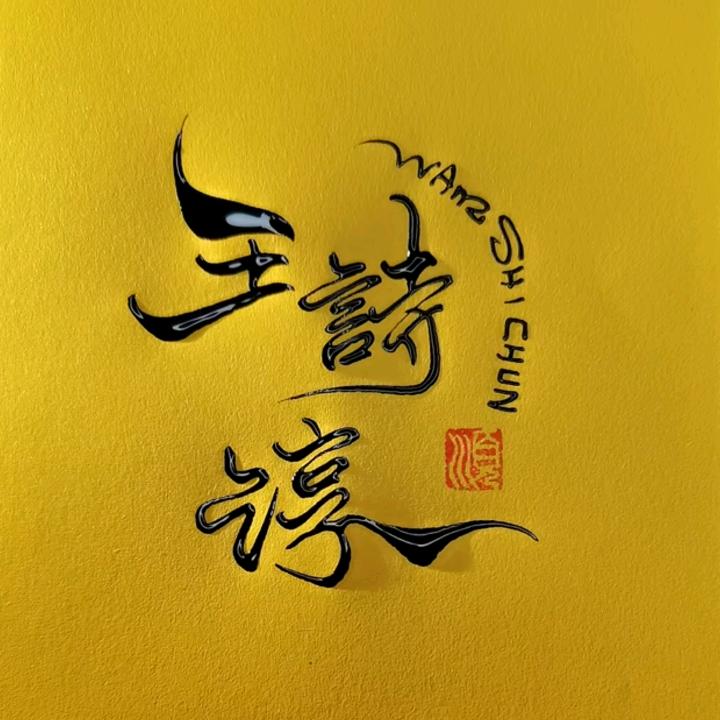 王詩
淳
WANG SHI CHUN